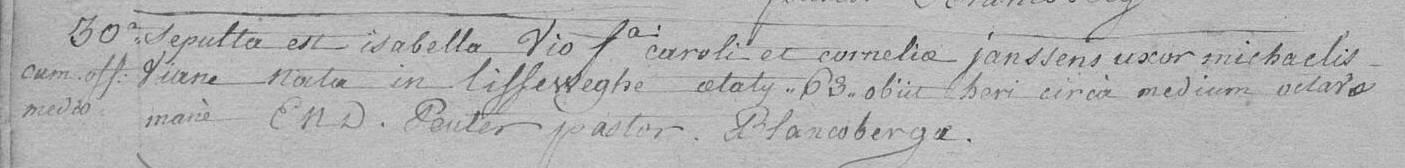 30a. Sepulta est isabella Vio fa. caroli et corneliæ janssens uxor michaelis
cum off: Viane nata in lisseweghe ætaty „63„ obiit heri circà medium octavæ
medio. manè E N D. Peuter pastor. Blancobergæ.